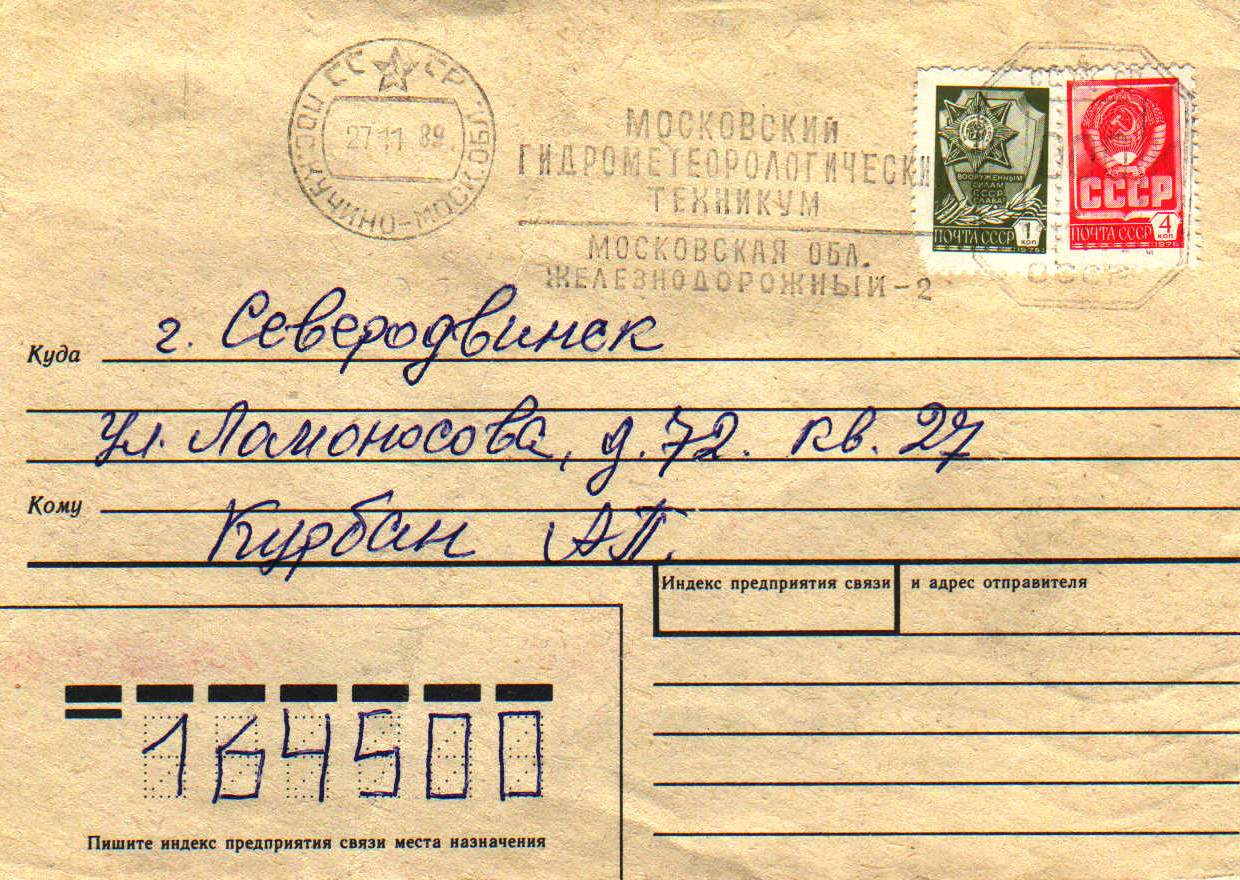 СССР
27 11 89
ПОС. КУЧИНО-МОСК.ОБЛ.
МОСКОВСКИЙ
ГИДРОМЕТЕОРОЛОГИЧЕСКИ
ТЕХНИКУМ
МОСКОВСКАЯ ОБЛ.
ЖЕЛЕЗНОДОРОЖНЫЙ-2
ВООРУЖЕННЫМ
СИЛАМ
СССР
СЛАВА!
ПОЧТА СССР 1 КОП
1976
СССР
ПОЧТА СССР 4 КОП
1976
СССР
Куда г. Северодвинск
ул. Ломоносова, д. 72. кв. 27
Кому Курбан А.П.
Индекс предприятия связи и адрес отправителя
164500
Пишите индекс предприятия связи места назначения